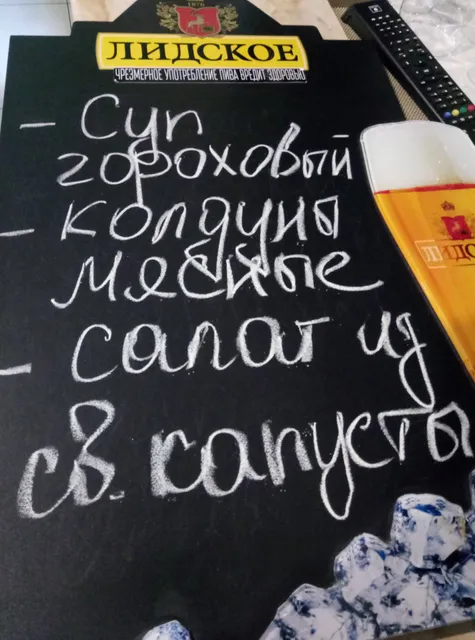 1876
ЛИДСКОЕ
ЧРЕЗМЕРНОЕ УПОТРЕБЛЕНИЕ ПИВА ВРЕДИТ ЗДОРОВЬЮ
- Суп
гороховый
- колдуны
мясные
- салат из
св. капусты